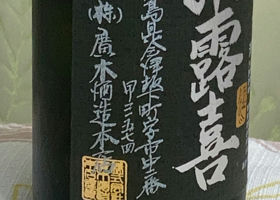 露喜
島県会津坂下町字市中二番
甲三五七四
(株)廣木酒造本店